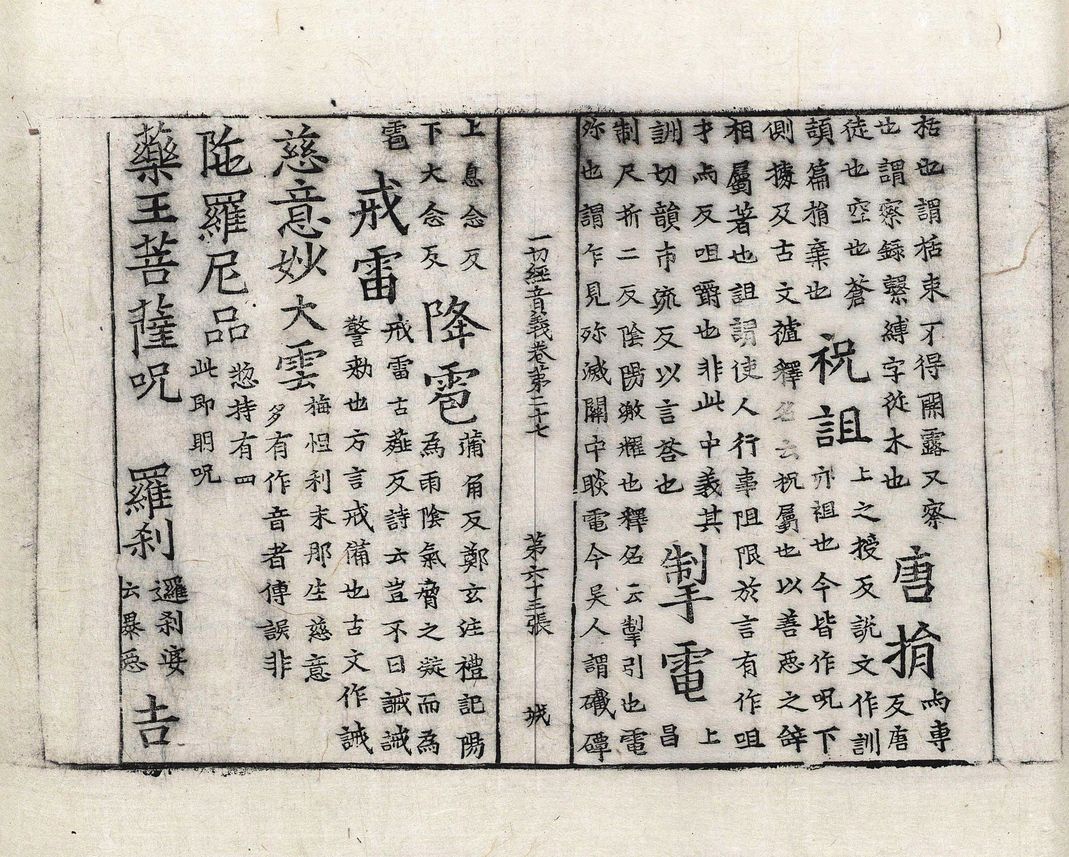 栝也謂栝束不得開露又察
也謂察録繫縛字從木也
唐捐
与專
反唐
徒也空也蒼
頡篇捐棄也
祝詛
上之授反說文作訓
亦祖也今皆作呪下
側據反古文禠釋名云祝屬也以善惡之辝
相屬著也詛謂使人行事阻限於言有作咀
才与反咀嚼也非此中義其
訓切韻市疏反以言荅也
掣電
上
昌
制尺折二反陰陽激耀也釋名云掣引也電
殄也謂乍見殄滅關中睒電今吳人謂礰磹
一切經音義卷第二十七 第六十三張 城
上息念反
下大念反
降雹
蒲角反鄭玄注禮記陽
爲雨陰氣脅之凝而爲
雹
戒雷
戒雷古薤反詩云豈不日誡誡
警勑也方言戒備也古文作誡
慈意妙大雲
梅怛利末那生慈意
多有作音者傳誤非
陁羅尼品
惣持有四
此即明呪
藥王菩薩呪 羅刹
邏刹娑
云暴惡
吉